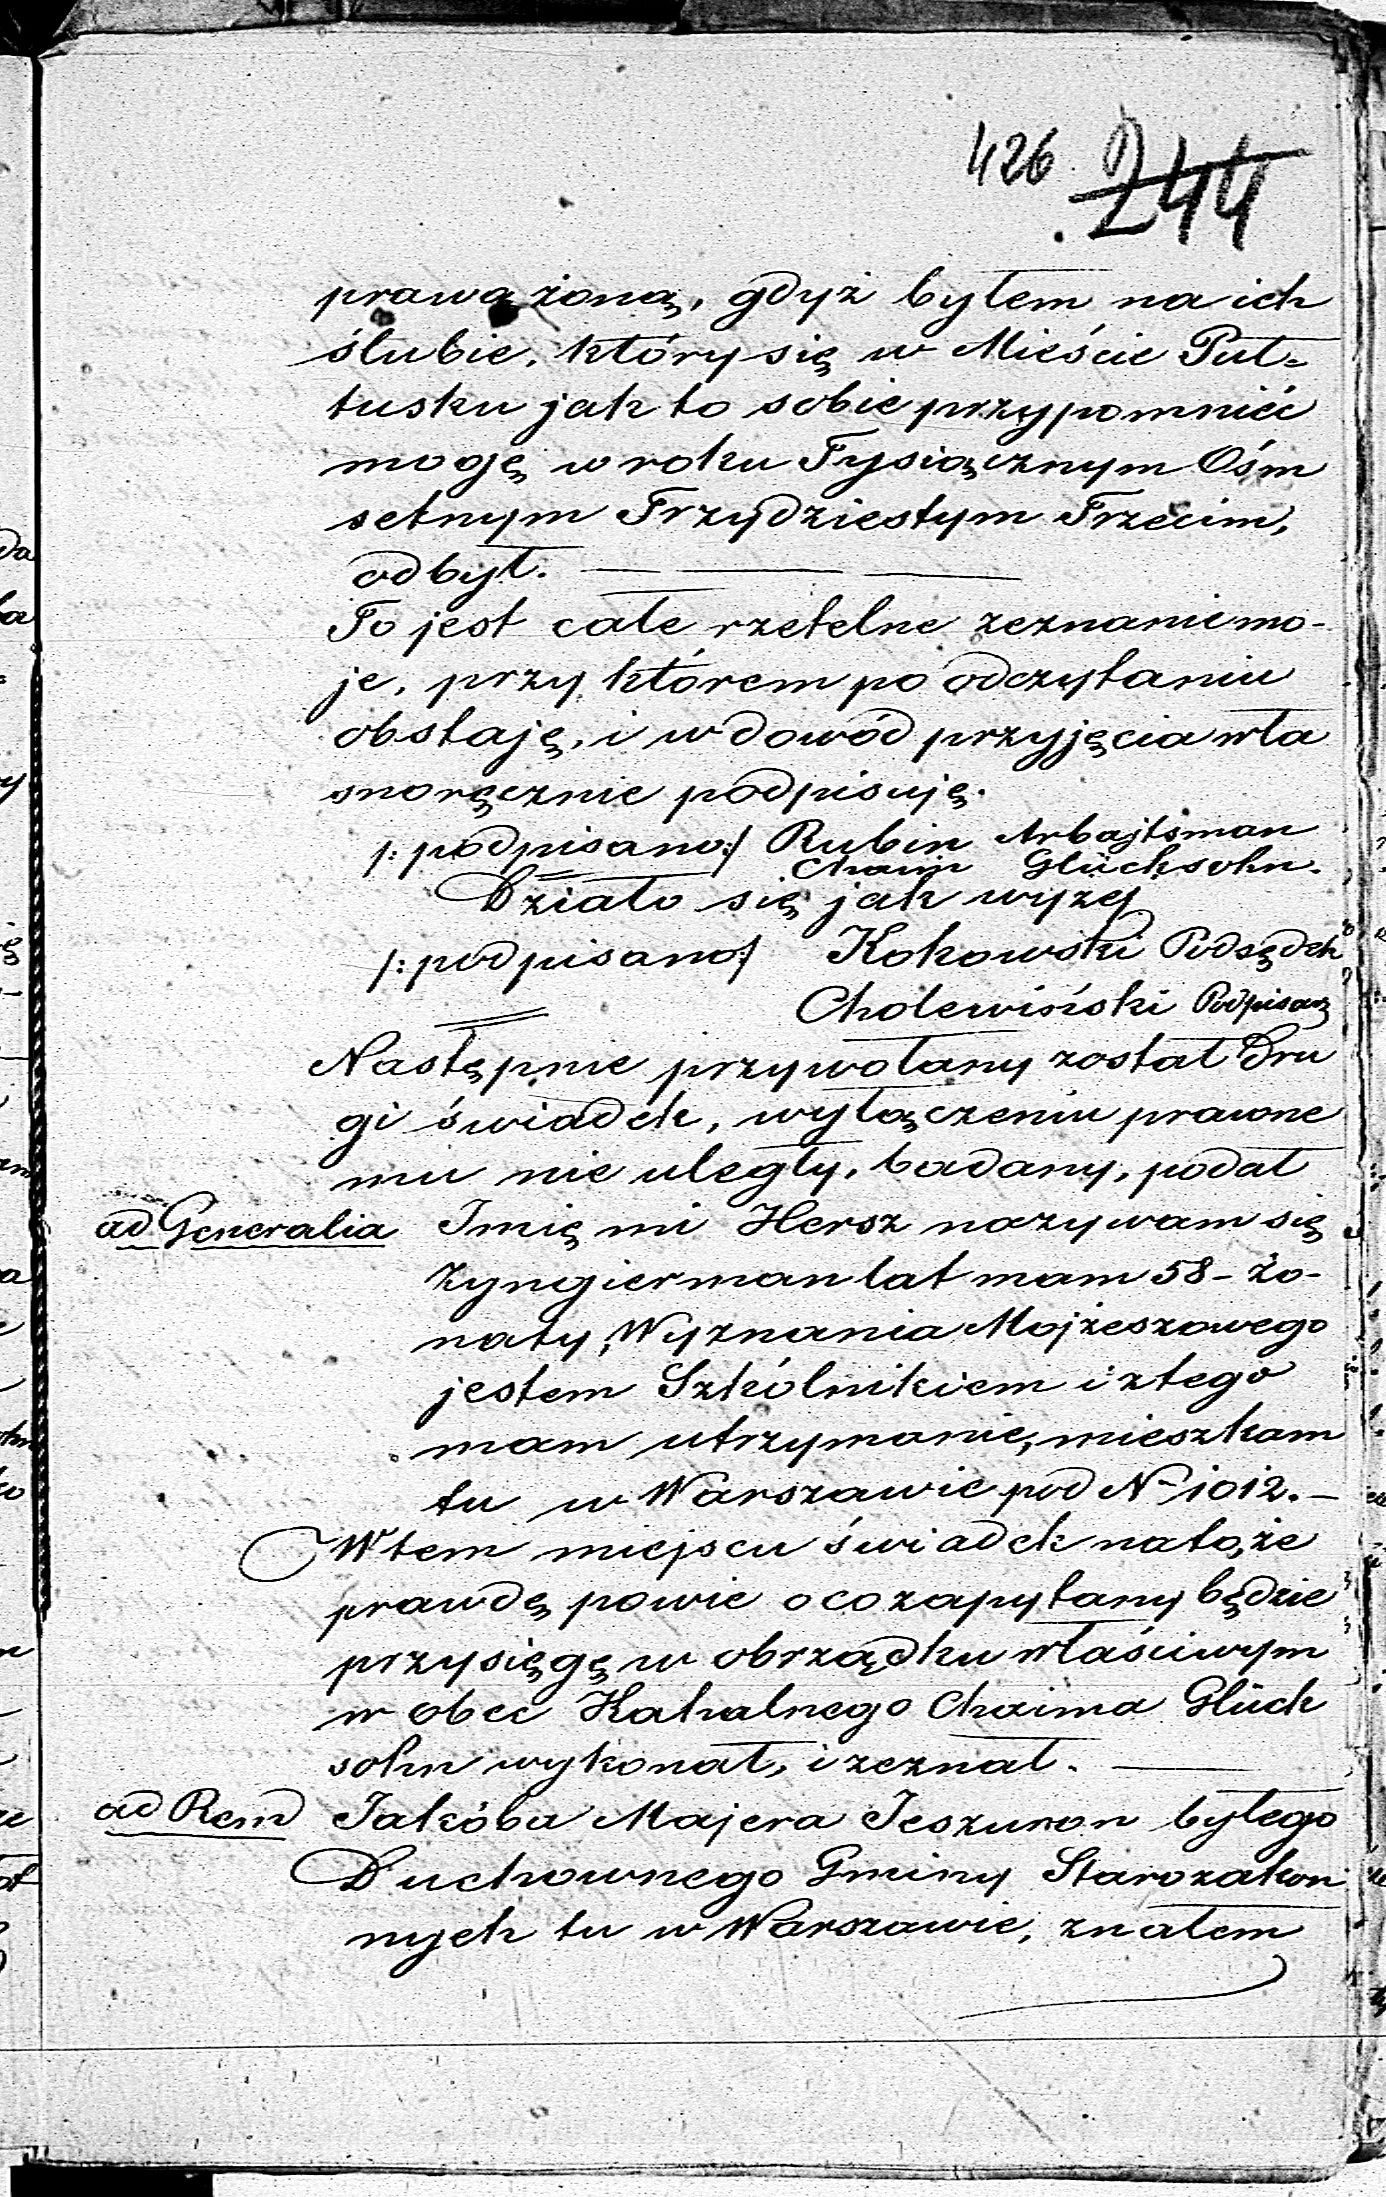 426. 244
prawą żoną, gdyż byłem na ich
ślubie, który się w Mieście Puł-
tusku jak to sobie przypomnieć
mogę w roku Tysiącznym Ośm
setnym Trzydziestym Trzecim,
odbył.
To jest całe rzetelne zeznanie mo-
je, przy którem po odczytaniu
obstaję, i w dowód przyjęcia wła
snoręcznie podpisuję.
/: podpisano :/ Rubin Arbajtsman
Chaim Glücksohn.
Działo się jak wyżej
/: podpisano :/ Kokowski Podsędek
Cholewiński Podpisarz
Następnie przywołany został Dru
gi świadek, wyłączeniu prawne
mu nie uległy, badany, podał
ad Generalia Imię mi Hersz nazywam się
Zyngierman lat mam 58 - żo-
naty, Wyznania Mojżeszowego
jestem Szkólnikiem i z tego
mam utrzymanie, mieszkam
tu w Warszawie pod N 1012. -
W tem miejscu świadek na to, że
prawdę powie o co zapytany będzie
przysięgę w obrządku właściwym
w obec Kahalnego Chaima Glück
sohn wykonał, i zeznał.
ad Rem Jakóba Majera Jeszuron byłego
Duchownego Gminy Starozakon
nych tu w Warszawie, znałem